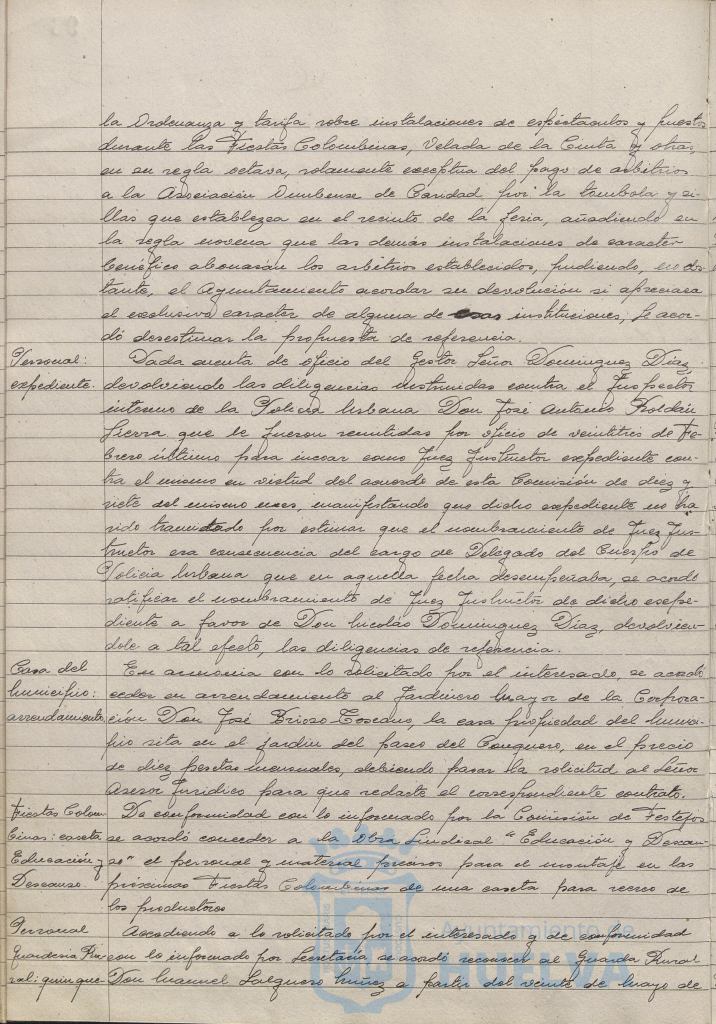 la Ordenanza y tarifa sobre instalaciones de espectáculos y puestos
durante las Fiestas Colombinas, Velada de la Cinta y otras,
en su regla octava, solamente exceptua del pago de arbitrios
a la Asociación Onubense de Caridad por la tombola y si-
llas que establezca en el recinto de la feria, añadiendo en
la regla novena que las demás instalaciones de caracter
benéfico abonarán los arbitrios establecidos, pudiendo, no obs-
tante, el Ayuntamiento acordar su devolución si apreciara
el exclusivo caracter de alguna de esas instituciones, se acor-
dó desestimar la propuesta de referencia.
Personal:
expediente.
Dada cuenta de oficio del Gestor Señor Dominguez Díaz,
devolviendo las diligencias instruidas contra el Inspector
interino de la Policía Urbana Don José Antonio Roldán
Sierra que le fueron remitidas por oficio de veintitres de Fe-
brero último para incoar como Juez Instructor expediente con-
tra el mismo en virtud del acuerdo de esta Comisión de diez y
siete del mismo mes, manifestando que dicho expediente no ha
sido tramitado por estimar que el nombramiento de Juez Ins-
tructor era consecuencia del cargo de Delegado del Cuerpo de
Policia Urbana que en aquella fecha desempeñaba, se acordó
ratificar el nombramiento de Juez Instructor de dicho expe-
diente a favor de Don Nicolás Dominguez Díaz, devolvien-
dole a tal efecto, las diligencias de referencia.
Casa del
Municipio:
arrendamiento
En armonia con lo solicitado por el interesado, se acordó
ceder en arrendamiento al Jardinero Mayor de la Corpora-
ción Don José Brioso Toscano, la casa propiedad del Munici-
pio sita en el jardin del paseo del Conquero, en el precio
de diez pesetas mensuales, debiendo pasar la solicitud al Señor
Asesor Juridico para que redacte el correspondiente contrato.
Fiestas Colom-
binas: caseta
Educación y
Descanso.
De conformidad con lo informado por la Comisión de Festejos
se acordó conceder a la Obra Sindical "Educación y Descan-
so" el personal y material precisos para el montaje en las
próximas Fiestas Colombinas de una caseta para recreo de
los productores
Personal
Guarderia Ru-
ral: quinque-
Accediendo a lo solicitado por el interesado y de conformidad
con lo informado por Secretaría se acordó reconocer al Guarda Rural
Don Manuel Salguero Núñez a partir del veinte de Mayo de
Ayuntamiento de
HUELVA